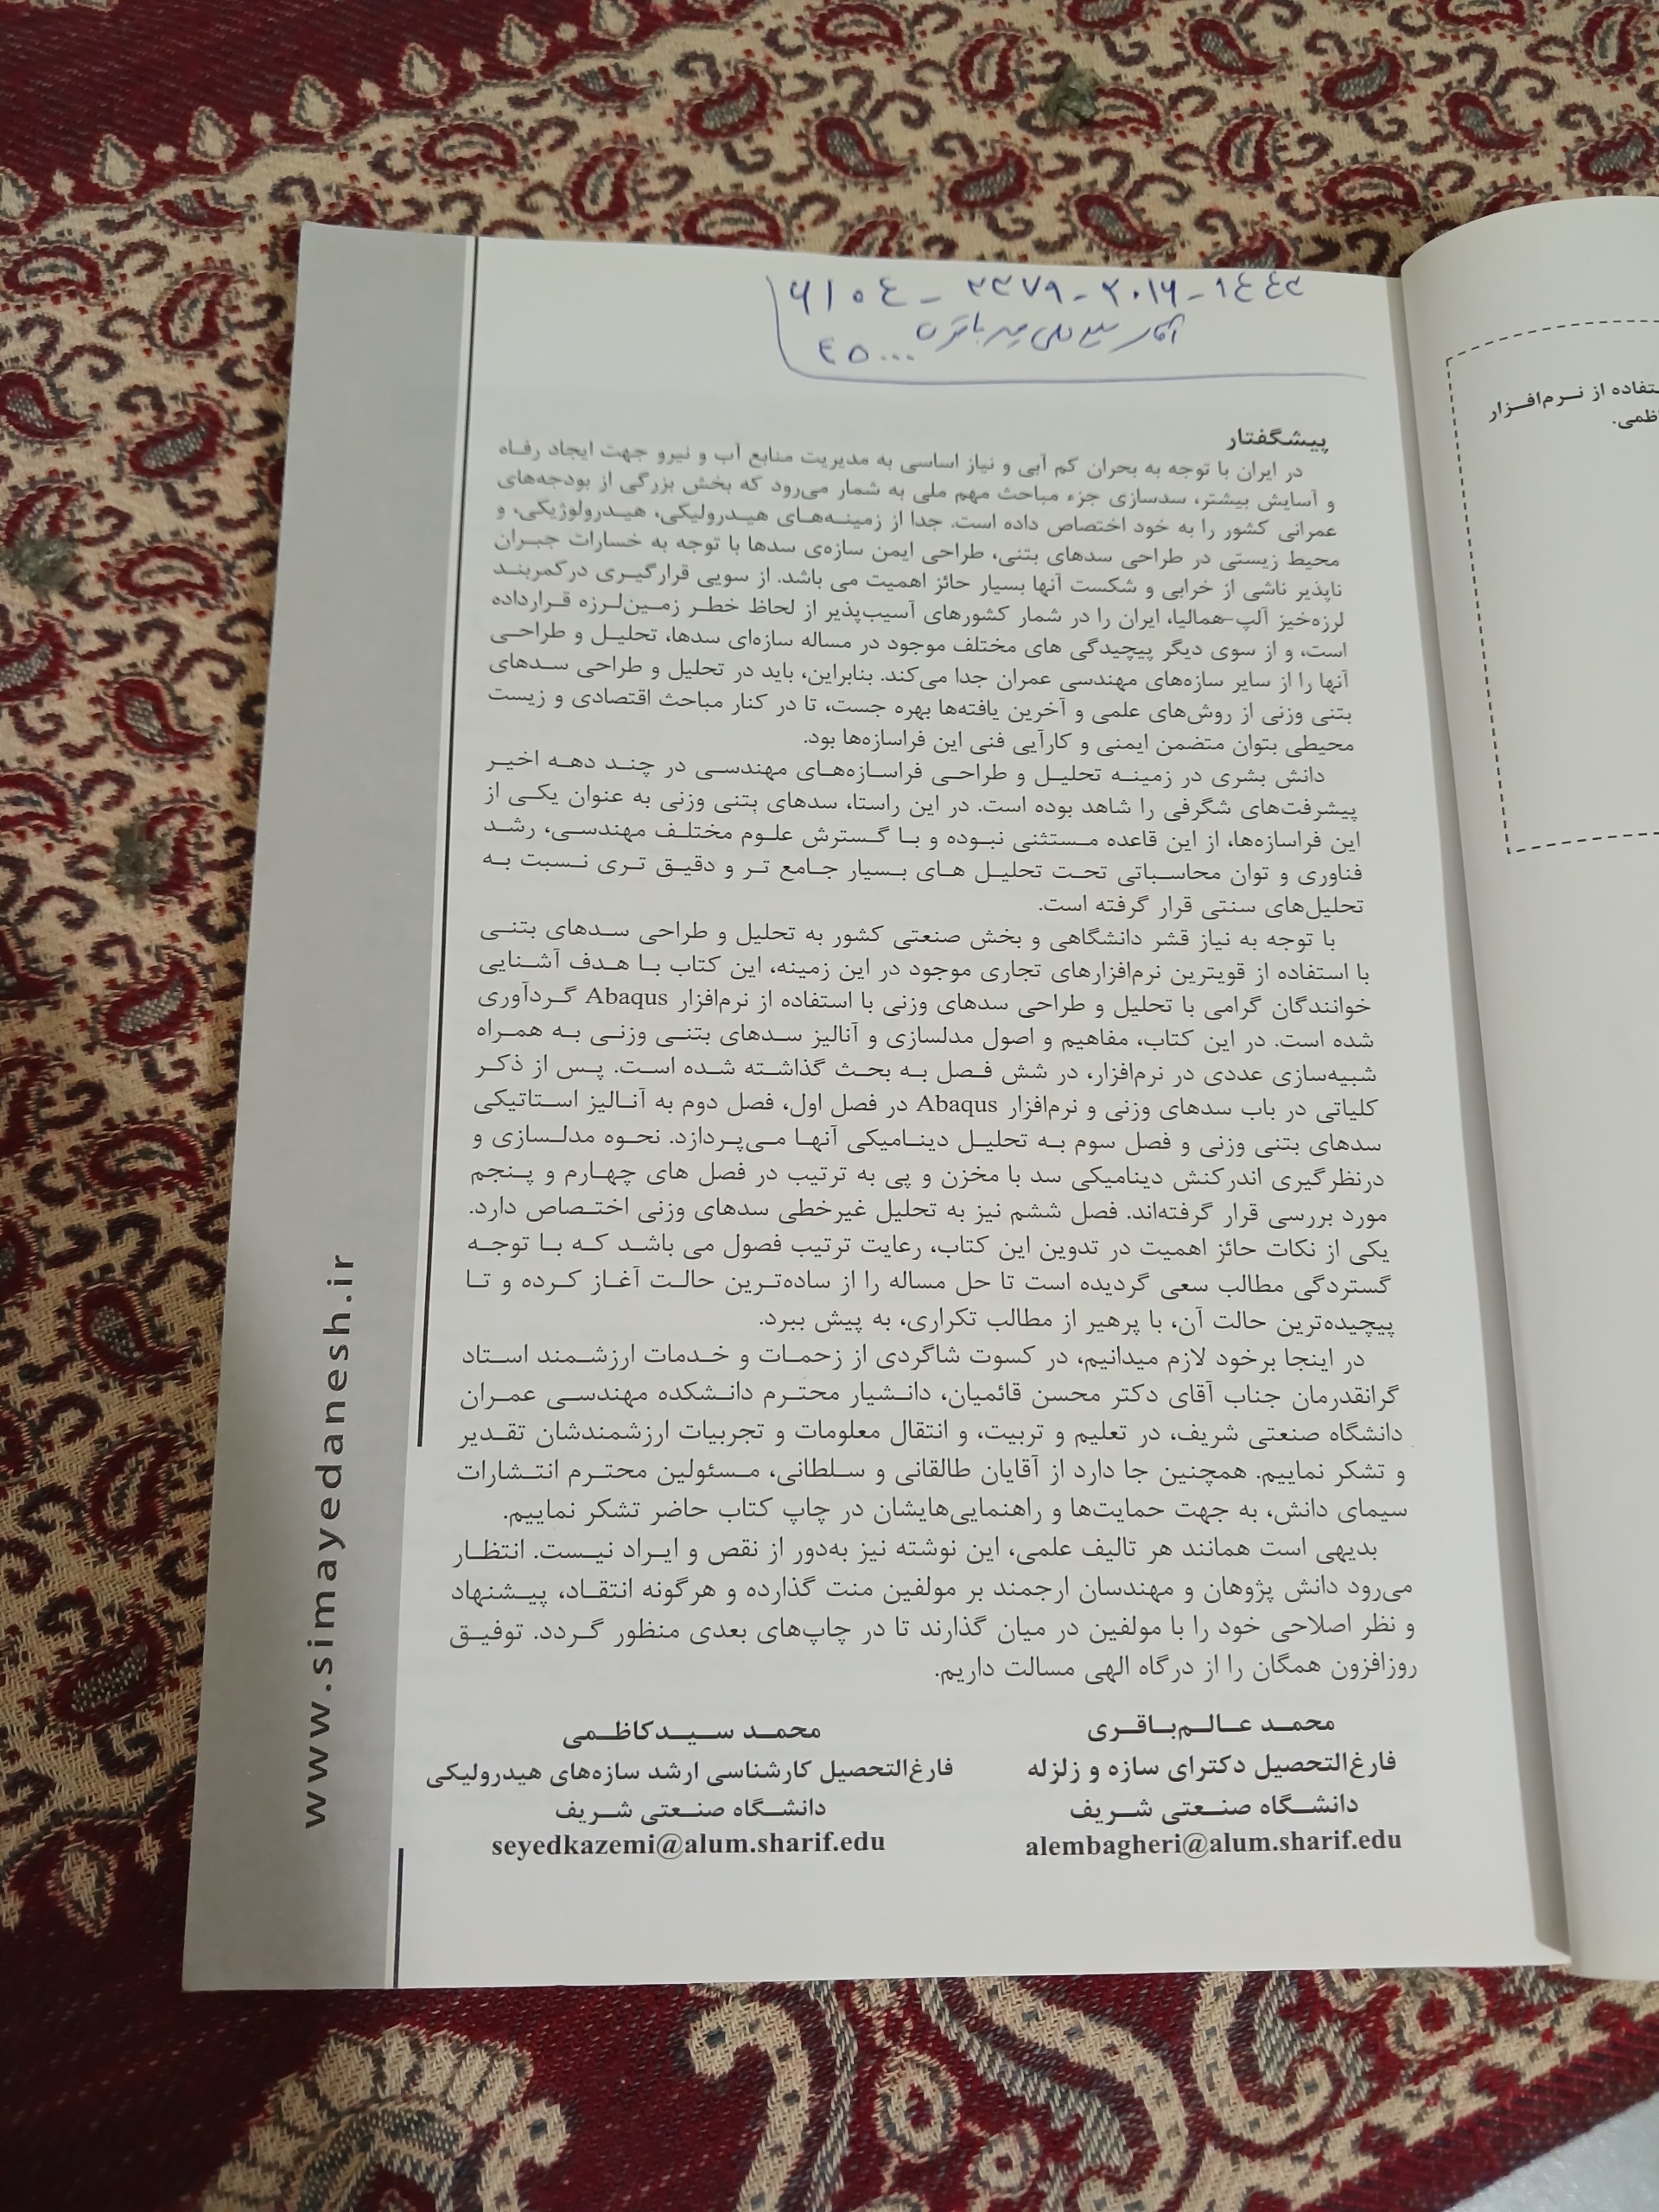 ۶۱۰٤ - ۲۳۷۹ - ۲۰۱۶ - ۹٤٤۳
آقای
٤۵۰۰۰
پیشگفتار
در ایران با توجه به بحران کم آبی و نیاز اساسی به مدیریت منابع آب و نیرو جهت ایجاد رفاه
و آسایش بیشتر، سدسازی جزء مباحث مهم ملی به شمار می‌رود که بخش بزرگی از بودجه‌های
عمرانی کشور را به خود اختصاص داده است. جدا از زمینه‌های هیدرولیکی، هیدرولوژیکی، و
محیط زیستی در طراحی سدهای بتنی، طراحی ایمن سازه‌ی سدها با توجه به خسارات جبران
ناپذیر ناشی از خرابی و شکست آنها بسیار حائز اهمیت می باشد. از سویی قرارگیری درکمربند
لرزه‌خیز آلپ-همالیا، ایران را در شمار کشورهای آسیب‌پذیر از لحاظ خطر زمین‌لرزه قرارداده
است، و از سوی دیگر پیچیدگی های مختلف موجود در مساله سازه‌ای سدها، تحلیل و طراحی
آنها را از سایر سازه‌های مهندسی عمران جدا می‌کند. بنابراین، باید در تحلیل و طراحی سدهای
بتنی وزنی از روش‌های علمی و آخرین یافته‌ها بهره جست، تا در کنار مباحث اقتصادی و زیست
محیطی بتوان متضمن ایمنی و کارآیی فنی این فراسازه‌ها بود.
دانش بشری در زمینه تحلیل و طراحی فراسازه‌های مهندسی در چند دهه اخیر
پیشرفت‌های شگرفی را شاهد بوده است. در این راستا، سدهای بتنی وزنی به عنوان یکی از
این فراسازه‌ها، از این قاعده مستثنی نبوده و با گسترش علوم مختلف مهندسی، رشد
فناوری و توان محاسباتی تحت تحلیل های بسیار جامع تر و دقیق تری نسبت به
تحلیل‌های سنتی قرار گرفته است.
با توجه به نیاز قشر دانشگاهی و بخش صنعتی کشور به تحلیل و طراحی سدهای بتنی
با استفاده از قویترین نرم‌افزارهای تجاری موجود در این زمینه، این کتاب با هدف آشنایی
خوانندگان گرامی با تحلیل و طراحی سدهای وزنی با استفاده از نرم‌افزار Abaqus گردآوری
شده است. در این کتاب، مفاهیم و اصول مدلسازی و آنالیز سدهای بتنی وزنی به همراه
شبیه‌سازی عددی در نرم‌افزار، در شش فصل به بحث گذاشته شده است. پس از ذکر
کلیاتی در باب سدهای وزنی و نرم‌افزار Abaqus در فصل اول، فصل دوم به آنالیز استاتیکی
سدهای بتنی وزنی و فصل سوم به تحلیل دینامیکی آنها می‌پردازد. نحوه مدلسازی و
درنظرگیری اندرکنش دینامیکی سد با مخزن و پی به ترتیب در فصل های چهارم و پنجم
مورد بررسی قرار گرفته‌اند. فصل ششم نیز به تحلیل غیرخطی سدهای وزنی اختصاص دارد.
یکی از نکات حائز اهمیت در تدوین این کتاب، رعایت ترتیب فصول می باشد که با توجه
گستردگی مطالب سعی گردیده است تا حل مساله را از ساده‌ترین حالت آغاز کرده و تا
پیچیده‌ترین حالت آن، با پرهیر از مطالب تکراری، به پیش ببرد.
در اینجا برخود لازم میدانیم، در کسوت شاگردی از زحمات و خدمات ارزشمند استاد
گرانقدرمان جناب آقای دکتر محسن قائمیان، دانشیار محترم دانشکده مهندسی عمران
دانشگاه صنعتی شریف، در تعلیم و تربیت، و انتقال معلومات و تجربیات ارزشمندشان تقدیر
و تشکر نماییم. همچنین جا دارد از آقایان طالقانی و سلطانی، مسئولین محترم انتشارات
سیمای دانش، به جهت حمایت‌ها و راهنمایی‌هایشان در چاپ کتاب حاضر تشکر نماییم.
بدیهی است همانند هر تالیف علمی، این نوشته نیز به‌دور از نقص و ایراد نیست. انتظار
می‌رود دانش پژوهان و مهندسان ارجمند بر مولفین منت گذارده و هرگونه انتقاد، پیشنهاد
و نظر اصلاحی خود را با مولفین در میان گذارند تا در چاپ‌های بعدی منظور گردد. توفیق
روزافزون همگان را از درگاه الهی مسالت داریم.
محمد عالم‌باقری
فارغ‌التحصیل دکترای سازه و زلزله
دانشگاه صنعتی شریف
alembagheri@alum.sharif.edu
محمد سیدکاظمی
فارغ‌التحصیل کارشناسی ارشد سازه‌های هیدرولیکی
دانشگاه صنعتی شریف
seyedkazemi@alum.sharif.edu
www.simayedanesh.ir
از نرم‌افزار